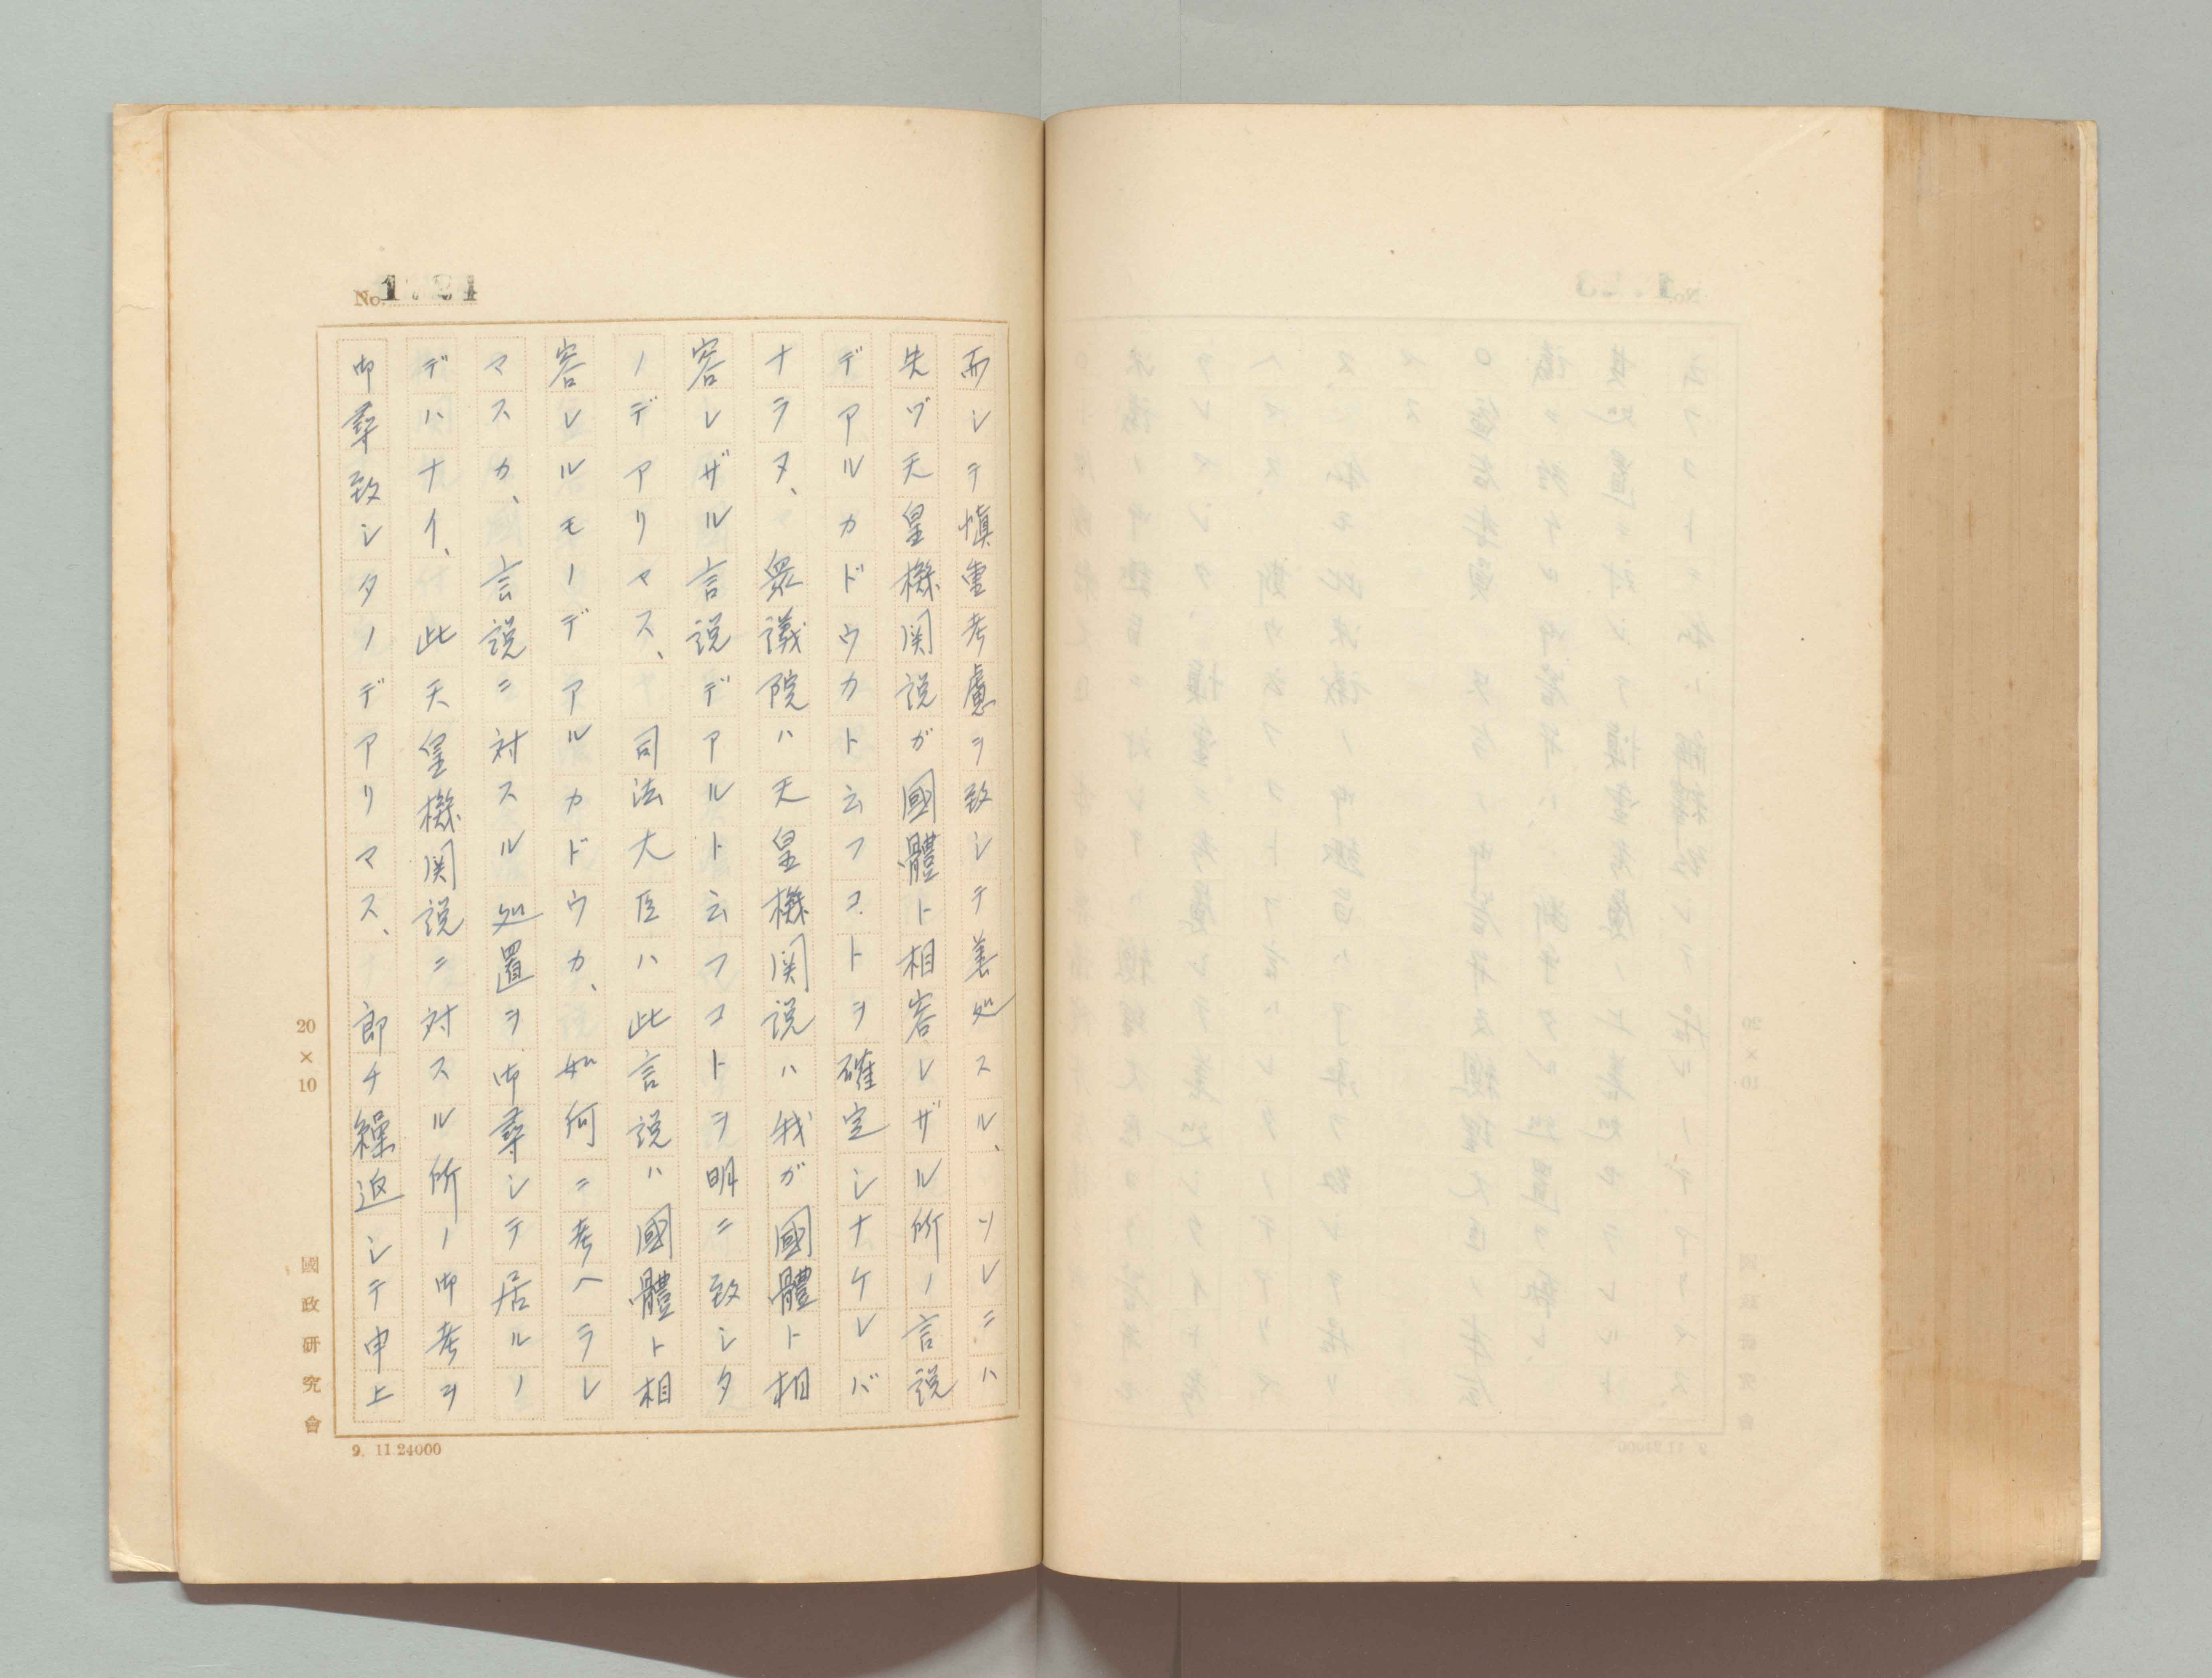 而シテ慎重考慮ヲ致シテ善処スル、ソレニハ
先ヅ天皇機関説ガ國體ト相容レザル所ノ言説
デアルカドウカト云フコトヲ確定シナケレバ
ナラヌ、衆議院ハ天皇機関説ハ我ガ國體ト相
容レザル言説デアルト云フコトヲ明ニ致シタ
ノデアリマス、司法大臣ハ此言説ハ國體ト相
容レルモノデアルカドウカ、如何ニ考ヘラレ
マスカ、言説ニ対スル処置ヲ御尋シテ居ルノ
デハナイ、此天皇機関説ニ対スル所ノ御考ヲ
御尋致シタノデアリマス、即チ繰返シテ申上
20×10
國政研究會
9. 11.24000